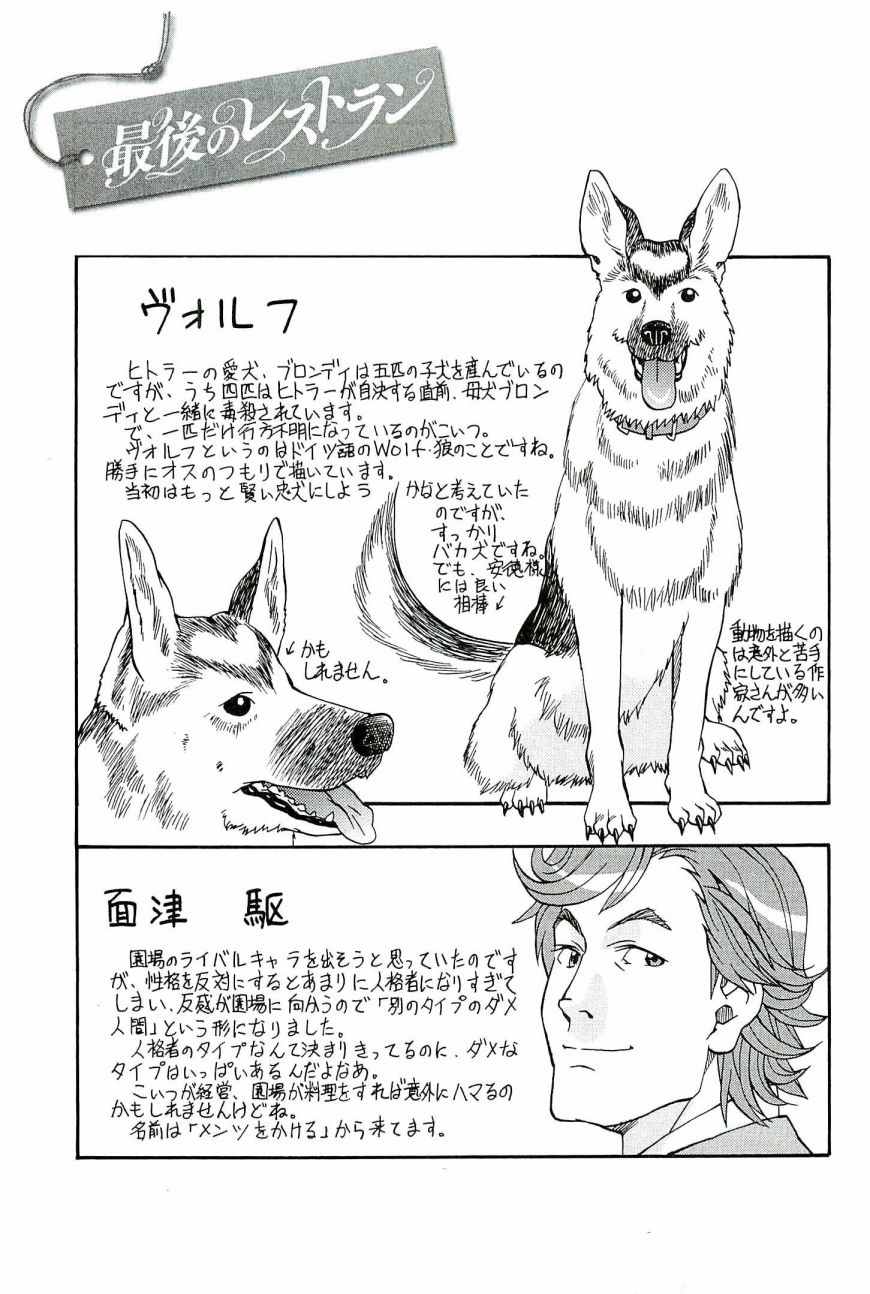 最後のレストラン
ヴォルフ
ヒトラーの愛犬、ブロンディは五匹の子犬を産んでいるの
ですが、うち四匹はヒトラーが自決する直前、母犬ブロン
ディと一緒に毒殺されています。
で、一匹だけ行方不明になっているのがこいつ。
ヴォルフというのはドイツ語のWolf・狼のことですね。
勝手にオスのつもりで描いています。
当初はもっと賢い忠犬にしよう
かなと考えていた
のですが、
すっかり
バカ犬ですね。
でも、安徳様
には良い
相棒↙
←かも
しれません。
動物を描くの
は意外と苦手
にしている作
家さんが多い
んですよ。
面津 駆
園場のライバルキャラを出そうと思っていたのです
が、性格を反対にするとあまりに人格者になりすぎて
しまい、反感が園場に向かうので「別のタイプのダメ
人間」という形になりました。
人格者のタイプなんて決まりきってるのに、ダメな
タイプはいっぱいあるんだよなあ。
こいつが経営、園場が料理をすれば意外にハマるの
かもしれませんけどね。
名前は「メンツをかける」から来てます。